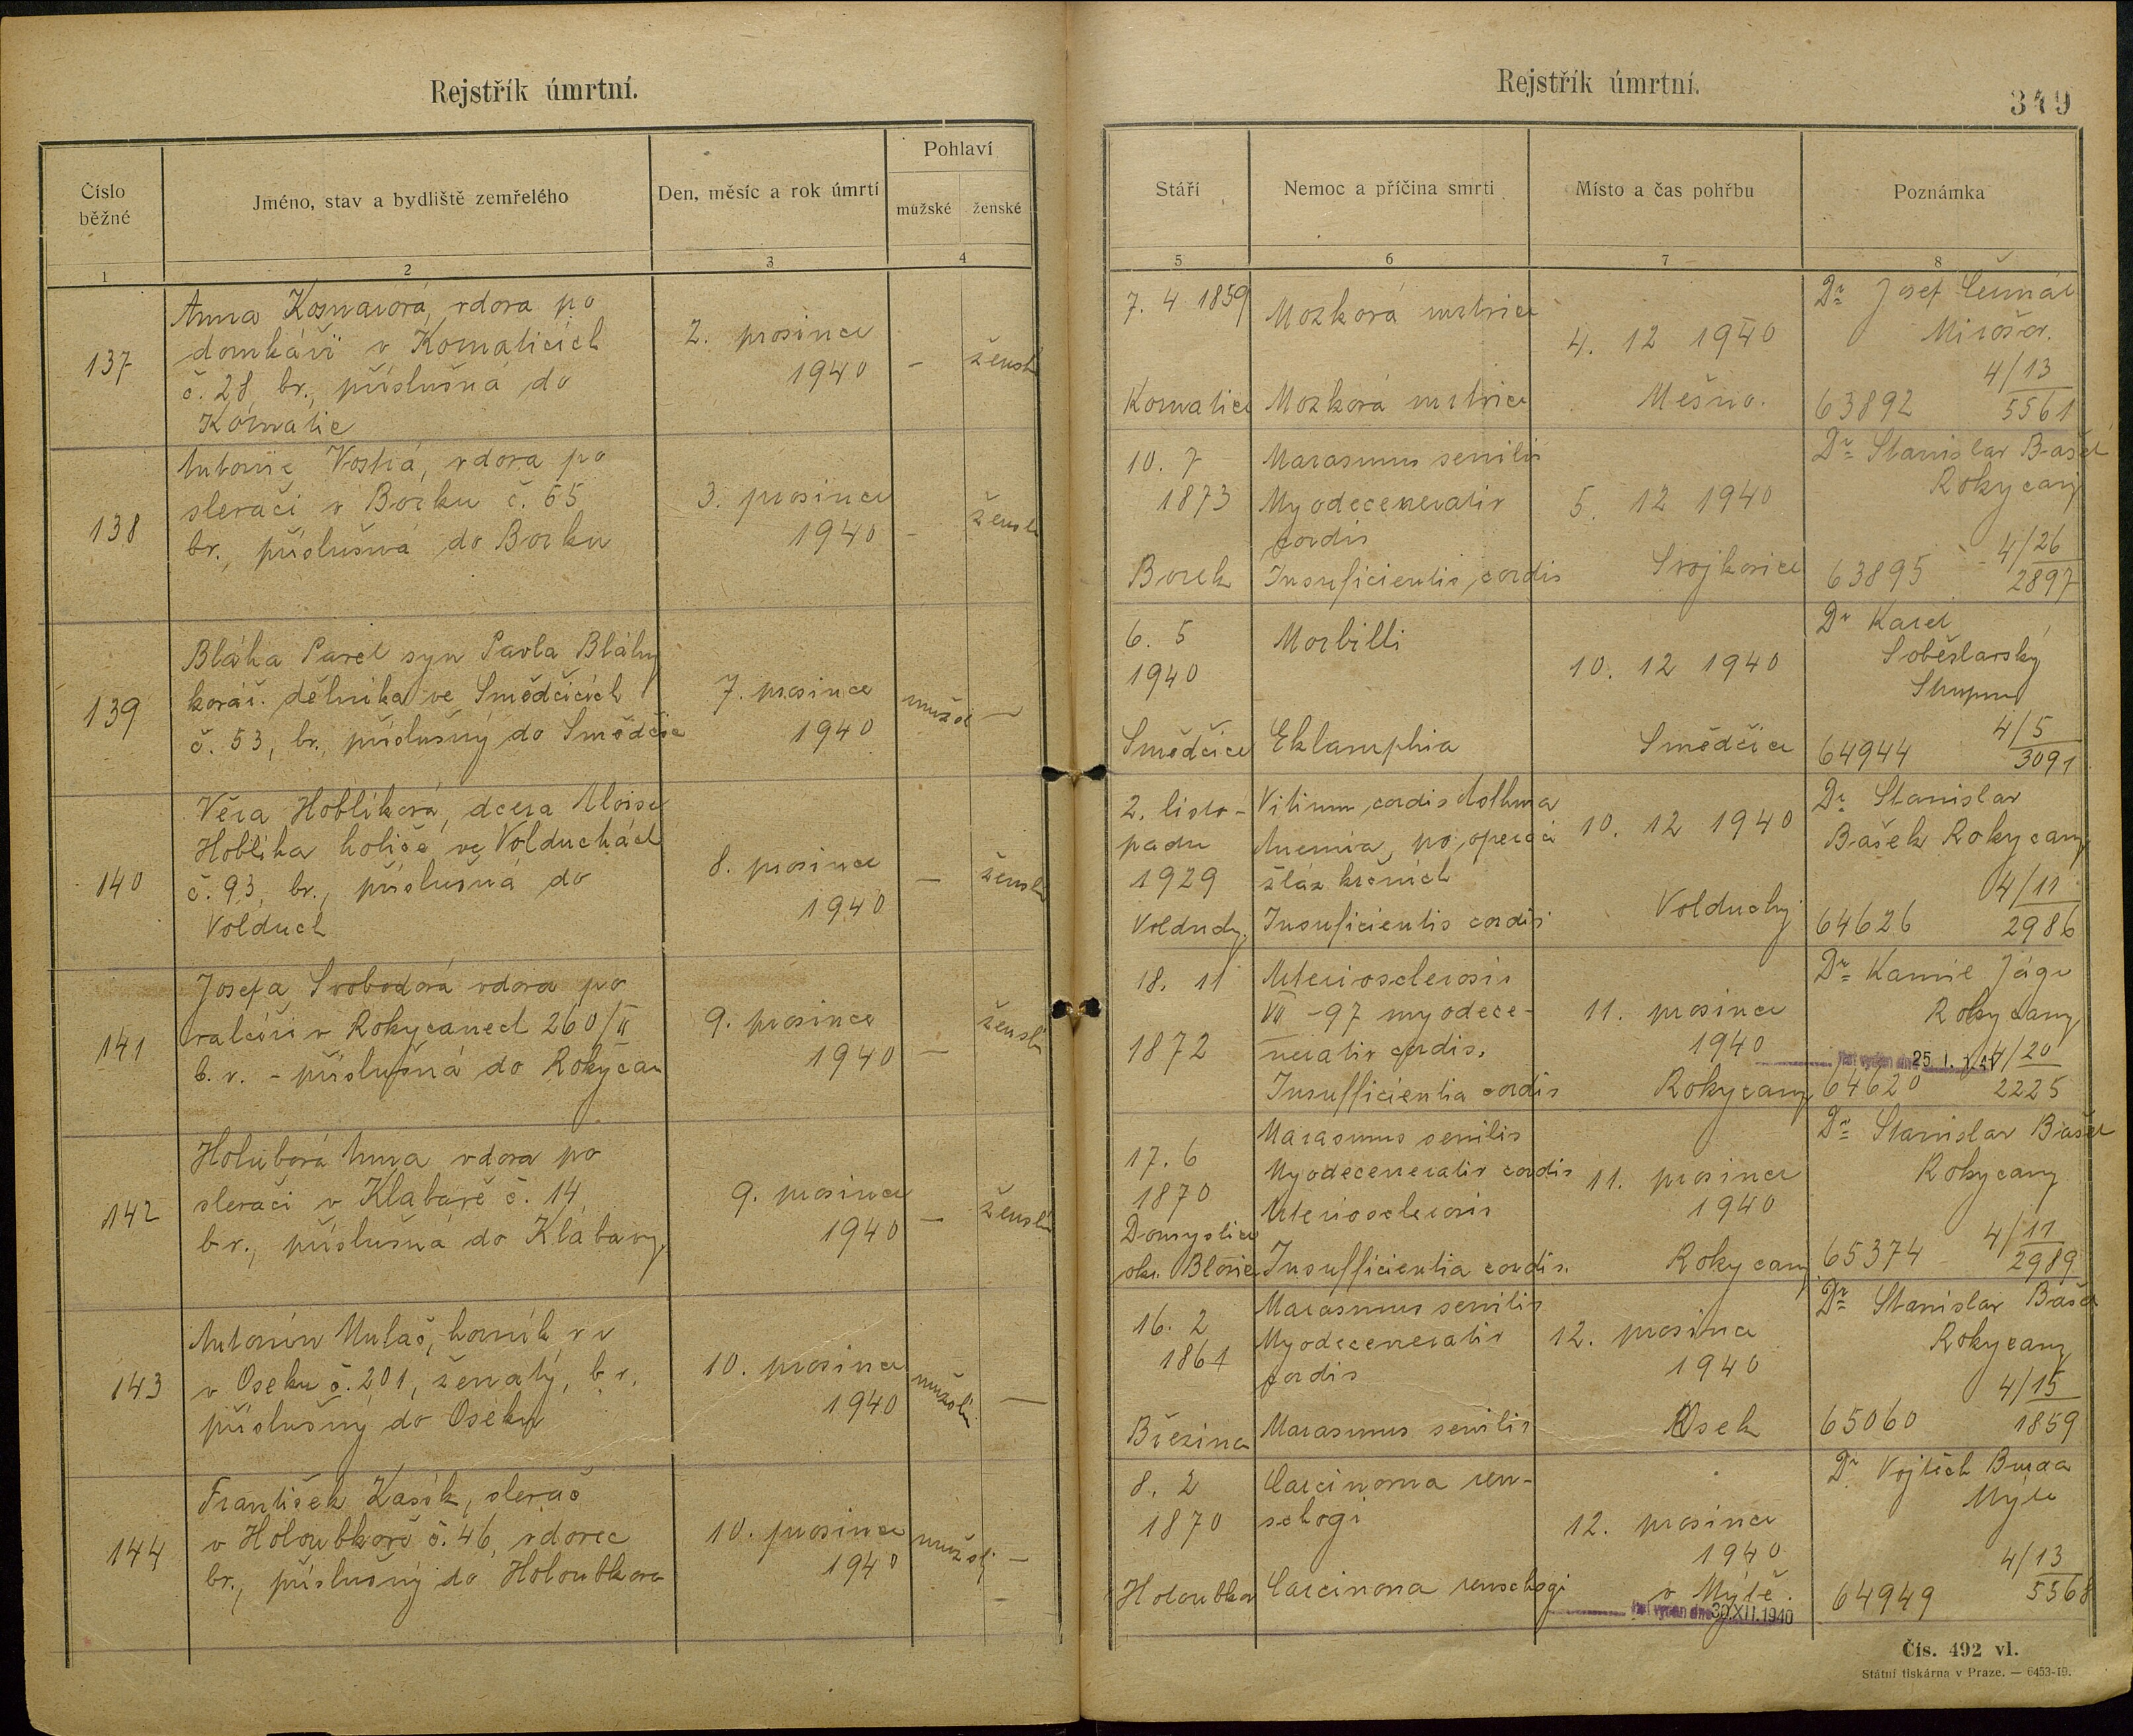 Rejstřík úmrtní.
Číslo běžné
Jméno, stav a bydliště zemřelého
Den, měsíc a rok úmrtí
Pohlaví
mužské
ženské
1
2
3
4
137
Anna vdova po
domkáři v Kornaticích
č. 28, br., příslušná do
Kornatic
2. prosince
1940
–
žensk
138
Antonie Vostrá, vdova po
slevači v Borku č. 55
br., příslušná do Borku
3. prosince
1940
–
žensk
139
Bláha Pavel syn Pavla Bláhy
kovář. dělníka ve Smědčicích
č. 53, br., příslušný do Smědčic
7. prosince
1940
mužsk
–
140
Věra Hoblíková, dcera Aloise
Hoblíka holiče ve Volduchách
č. 93, br., příslušná do
Volduch
8. prosince
1940
–
žensk
141
Josefa Svobodová vdova po
v Rokycanech 260/II
b. v. – příslušná do Rokycan
9. prosince
1940
–
žensk
142
Holubová Anna vdova po
slevači v Klabavě č. 14
br., příslušná do Klabavy
9. prosince
1940
–
žensk
143
Antonín horník v v
v Oseku č. 201, ženatý, b. v.
příslušný do Oseka
10. prosince
1940
mužsk
–
144
František Kasík, slevač
v Holoubkově č. 46, vdovec
br., příslušný do Holoubkova
10. prosince
1940
mužsk
–
Rejstřík úmrtní.
349
Stáří
Nemoc a příčina smrti
Místo a čas pohřbu
Poznámka
5
6
7
8
7. 4 1859
Kornatice
Mozková mrtvice
Mozková mrtvice
4. 12 1940
Mešno.
Dr Josef
Mirošov.
63892
4/13
5561
10. 7
1873
Borek
Marasmus senilis
Myodecenerativ
cordis
Insuficientis cordis
5. 12 1940
Svojkovice
Dr Stanislav Bašek
Rokycany
63895
4/26
2897
6. 5
1940
Smědčice
Morbilli
Eklamphia
10. 12 1940
Smědčice
Dr Karel
Soběslavský
64944
4/5
3091
2. listo-
padu
1929
Volduchy
Vitium cordis Asthma
Anemia, po operaci
žláz krčních
Insuficientis cordis
10. 12 1940
Volduchy
Dr Stanislav
Bašek Rokycany
64626
4/11
2986
18. 11
1872
Arteriosclerosis
VII – 97 myodece-
nerativ cordis.
Insufficientia cordis
11. prosince
1940
Rokycany
Dr Kamil
Rokycany
List vydán dne 25. I.
64620
4/20
2225
17. 6
1870
Domyslice
okr. Blovice
Marasmus senilis
Myodecenerativ cordis
Arteriosclerosis
Insufficientia cordis.
11. prosince
1940
Rokycany
Dr Stanislav Bašek
Rokycany
65374
4/11
2989
16. 2
1861
Březina
Marasmus senilis
Myodecenerativ
cordis
Marasmus senilis
12. prosince
1940
Osek
Dr Stanislav Bašek
Rokycany
65060
4/15
1859
8. 2
1870
Holoubkov
Carcinoma
Carcinoma
12. prosince
1940
v Mýtě.
List vydán dne 30. XII. 1940
Dr Vojtěch
Mýto
64949
4/13
5568
Čís. 492 vl.
Státní tiskárna v Praze. — 6453-19.